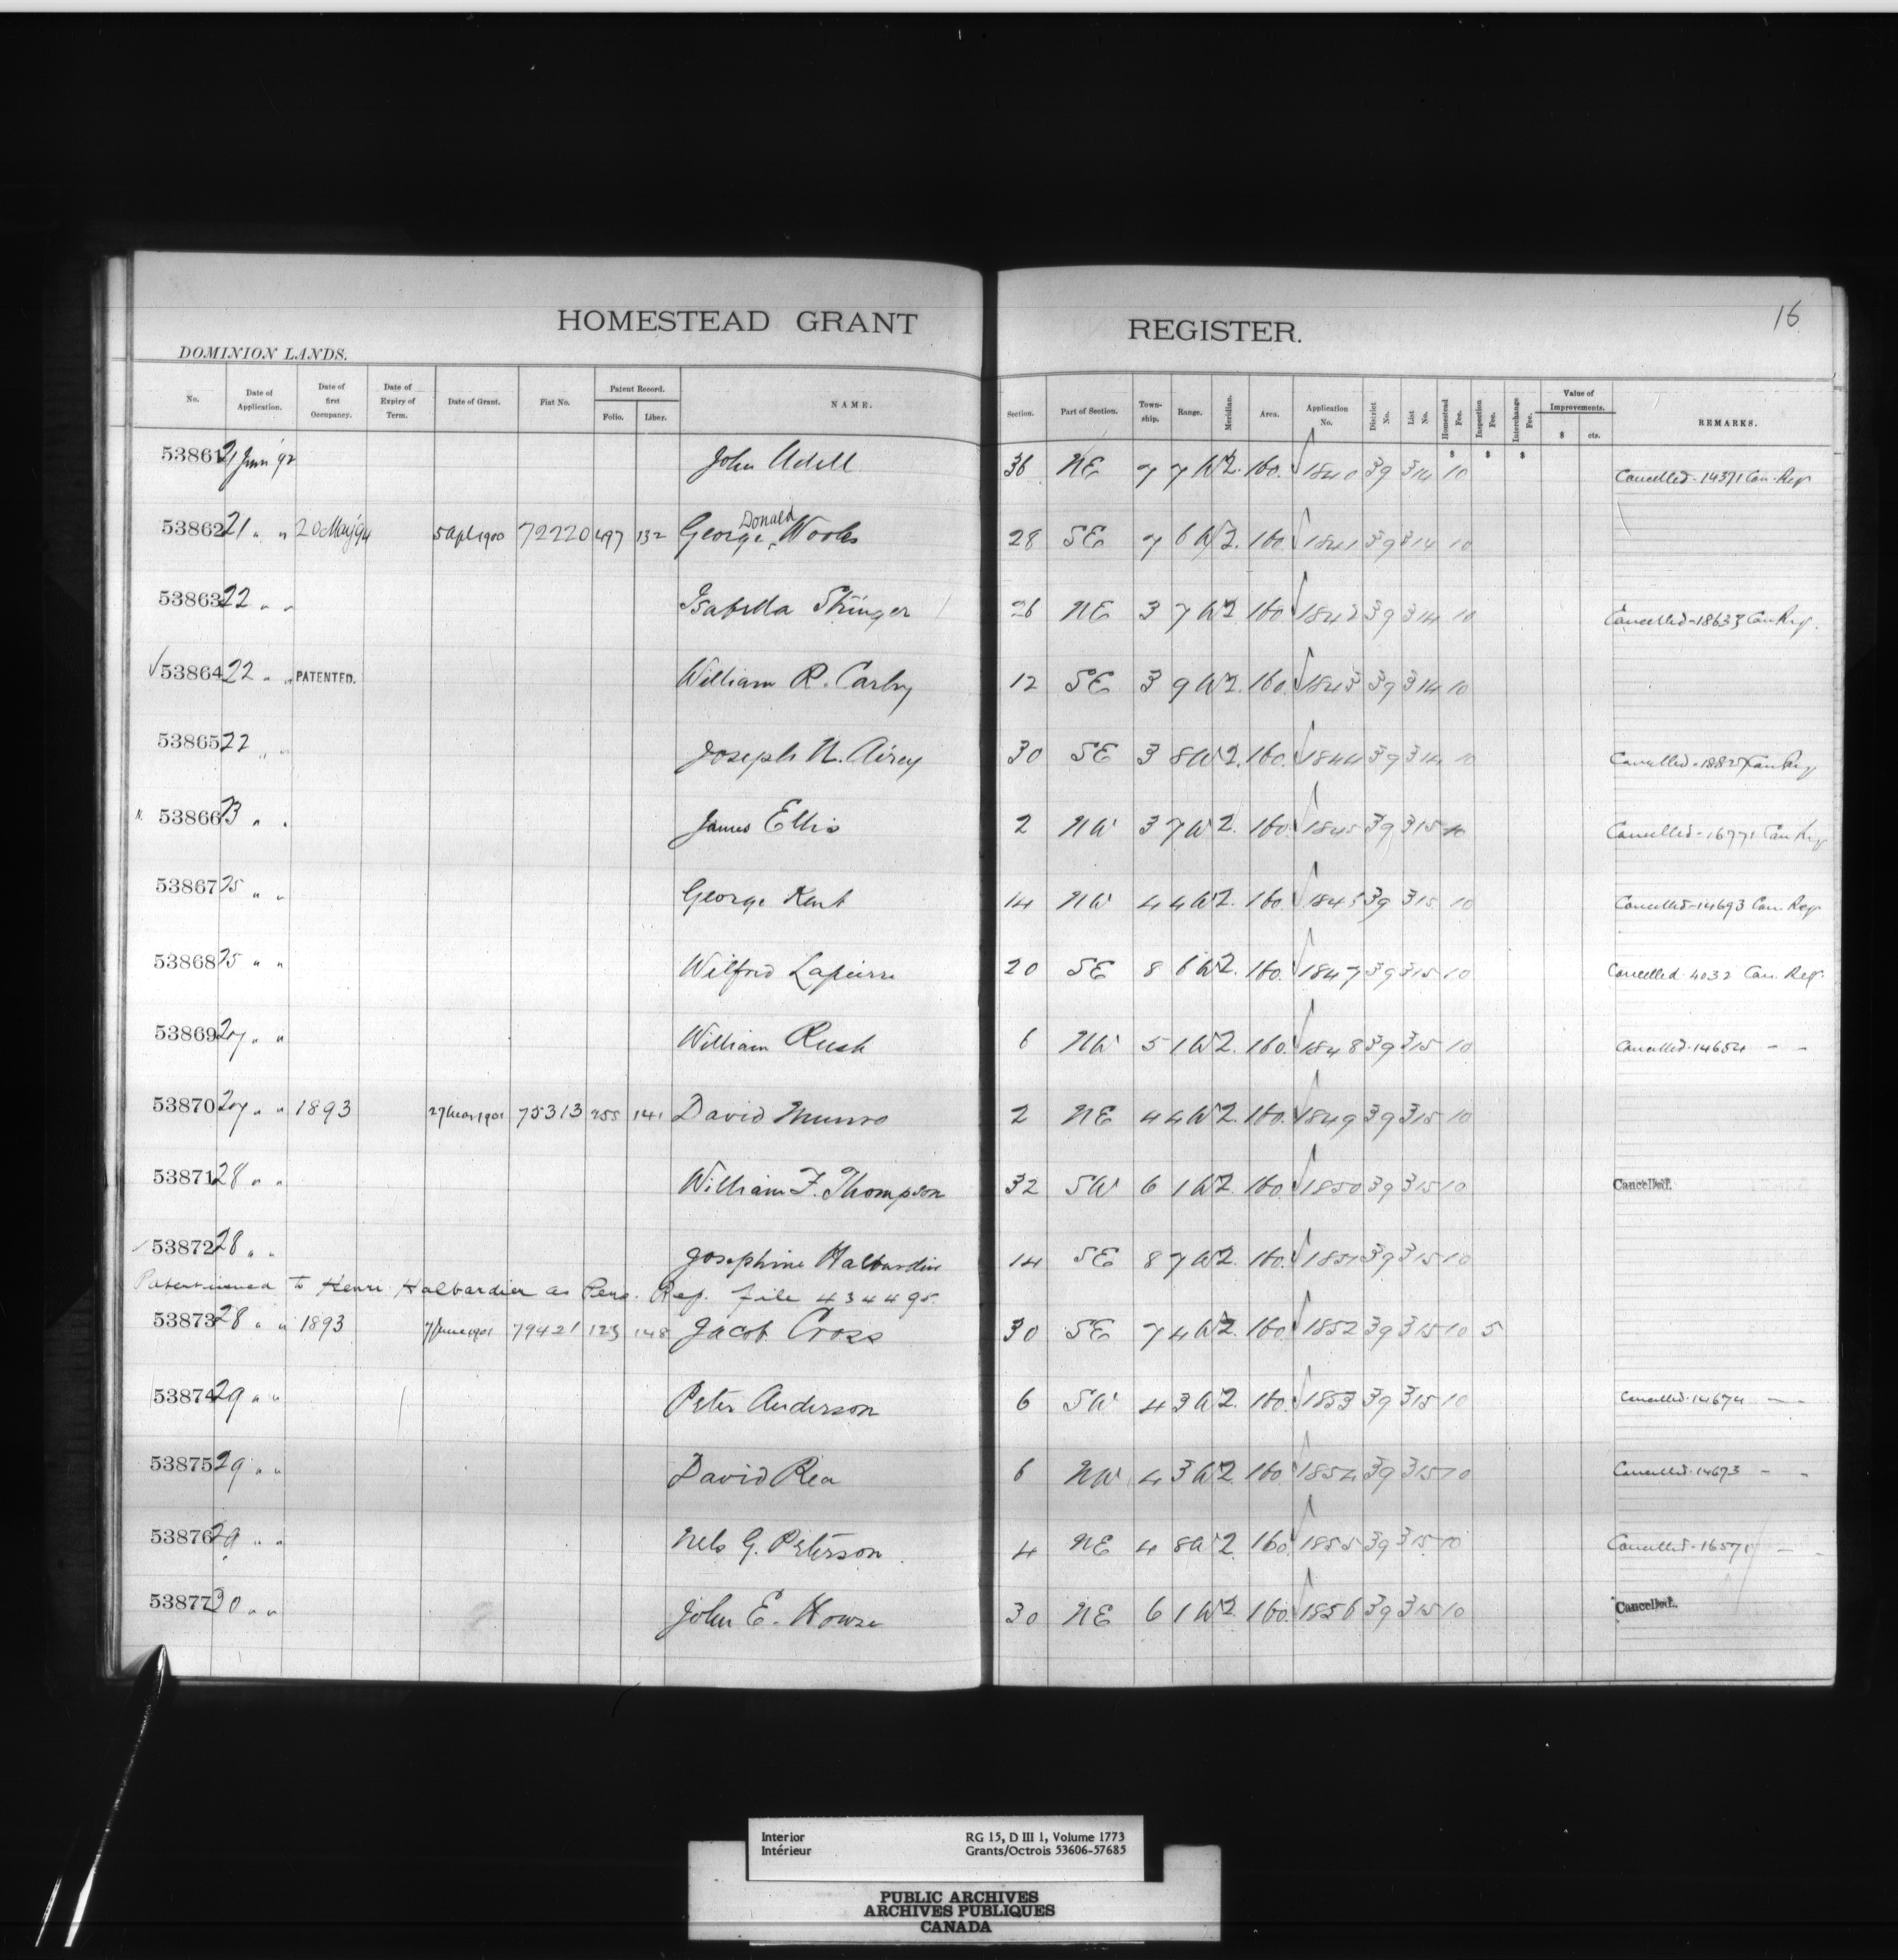 16
HOMESTEAD GRANT REGISTER.
DOMINION LANDS.
No. Date of Application. Date of first Occupancy. Date of Expiry of Term. Date of Grant. Fiat No. Patent Record. Folio. Liber. NAME. Section. Part of Section. Township. Range. Meridian. Area. Application No. District No. List No. Homestead Fee. Inspection Fee. Interchange Fee. Value of Improvements. $ cts. REMARKS.
$ $ $
53861 21 '92 John Udell 36 NE 7 7 W2. 160. 1840 39 314 10 Cancelled - 14371 Can. Reg.
53862 21 " " 20 May '94 5 Apl 1900 72220 497 132 George Donald 28 SE 7 6 W2. 160. 1841 39 314 10
53863 22 " " Isabella Stringer 26 NE 3 7 W2. 160. 1842 39 314 10 Cancelled - 18633 Can Reg.
53864 22 " " PATENTED. William R. Carby 12 SE 3 9 W2. 160. 1843 39 314 10
53865 22 " " Joseph N. Airey 30 SE 3 8 W2. 160. 1844 39 314 10 Cancelled - 18827 Can Reg
53866 23 " " James Ellis 2 NW 3 7 W2. 160. 1845 39 315 10 Cancelled - 16771 Can Reg
53867 25 " " George Kent 14 NW 4 4 W2. 160. 39 315 10 Cancelled - 14693 Can. Reg.
53868 25 " " Wilfrid Lapierre 20 SE 8 6 W2. 160. 1847 39 315 10 Cancelled. 4032 Can. Reg.
53869 27 " " William Rusk 6 NW 5 1 W2. 160. 1848 39 315 10 Cancelled. 14654 " "
53870 27 " " 1893 27 Mar 1901 75313 255 141 David Munro 2 NE 4 4 W2. 160. 1849 39 315 10
53871 28 " " William F. Thompson 32 SW 6 1 W2. 160. 1850 39 315 10 Cancelled.
53872 28 " " Josephine Halbardier 14 SE 8 7 W2. 160. 1851 39 315 10
Patent issued to Henri Halbardier as Pers. Rep. file 434495.
53873 28 " " 1893 7 June 1901 79421 123 148 Jacob Cross 30 SE 7 4 W2. 160. 1852 39 315 10 5
53874 29 " " Peter Anderson 6 SW 4 3 W2. 160. 1853 39 315 10 Cancelled. 14674 " "
53875 29 " " David Rea 6 NW 4 3 W2. 160. 1854 39 315 10 Cancelled. 14673 " "
53876 29 " " Nels G. Peterson 4 NE 4 8 W2. 160. 1855 39 315 10 Cancelled - 16571 " "
53877 30 " " John E. Howse 30 NE 6 1 W2. 160. 1856 39 315 10 Cancelled.
Interior RG 15, D III 1, Volume 1773
Intérieur Grants/Octrois 53606-57685
PUBLIC ARCHIVES
ARCHIVES PUBLIQUES
CANADA